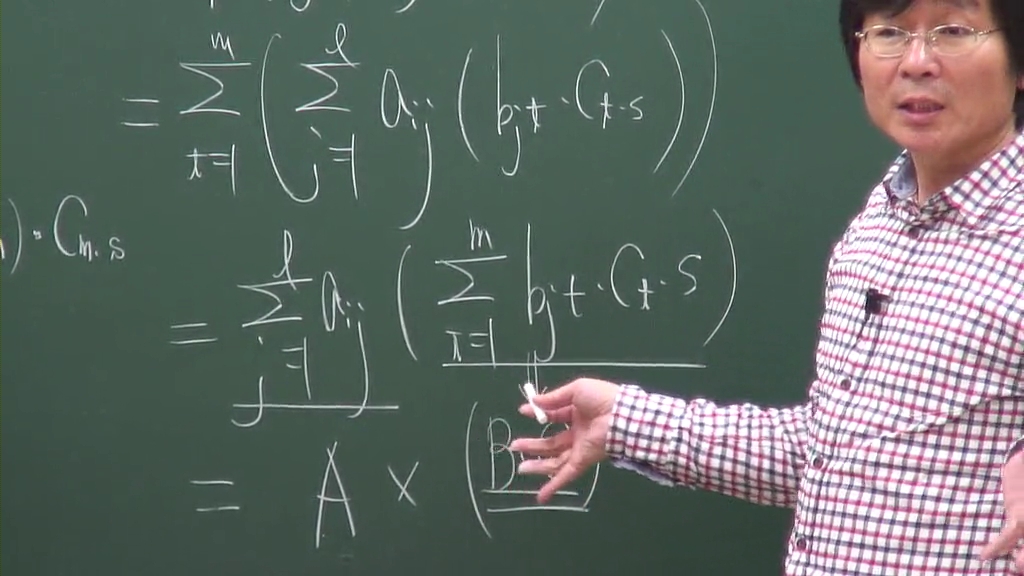 = \sum_{t=1}^{m} ( \sum_{j=1}^{l} a_{ij} ( b_{jt} \cdot C_{t \cdot s} ) )
) \cdot C_{m \cdot s}
= \sum_{j=1}^{l} a_{ij} ( \sum_{t=1}^{m} b_{jt} \cdot C_{t \cdot s} )
= A × (B